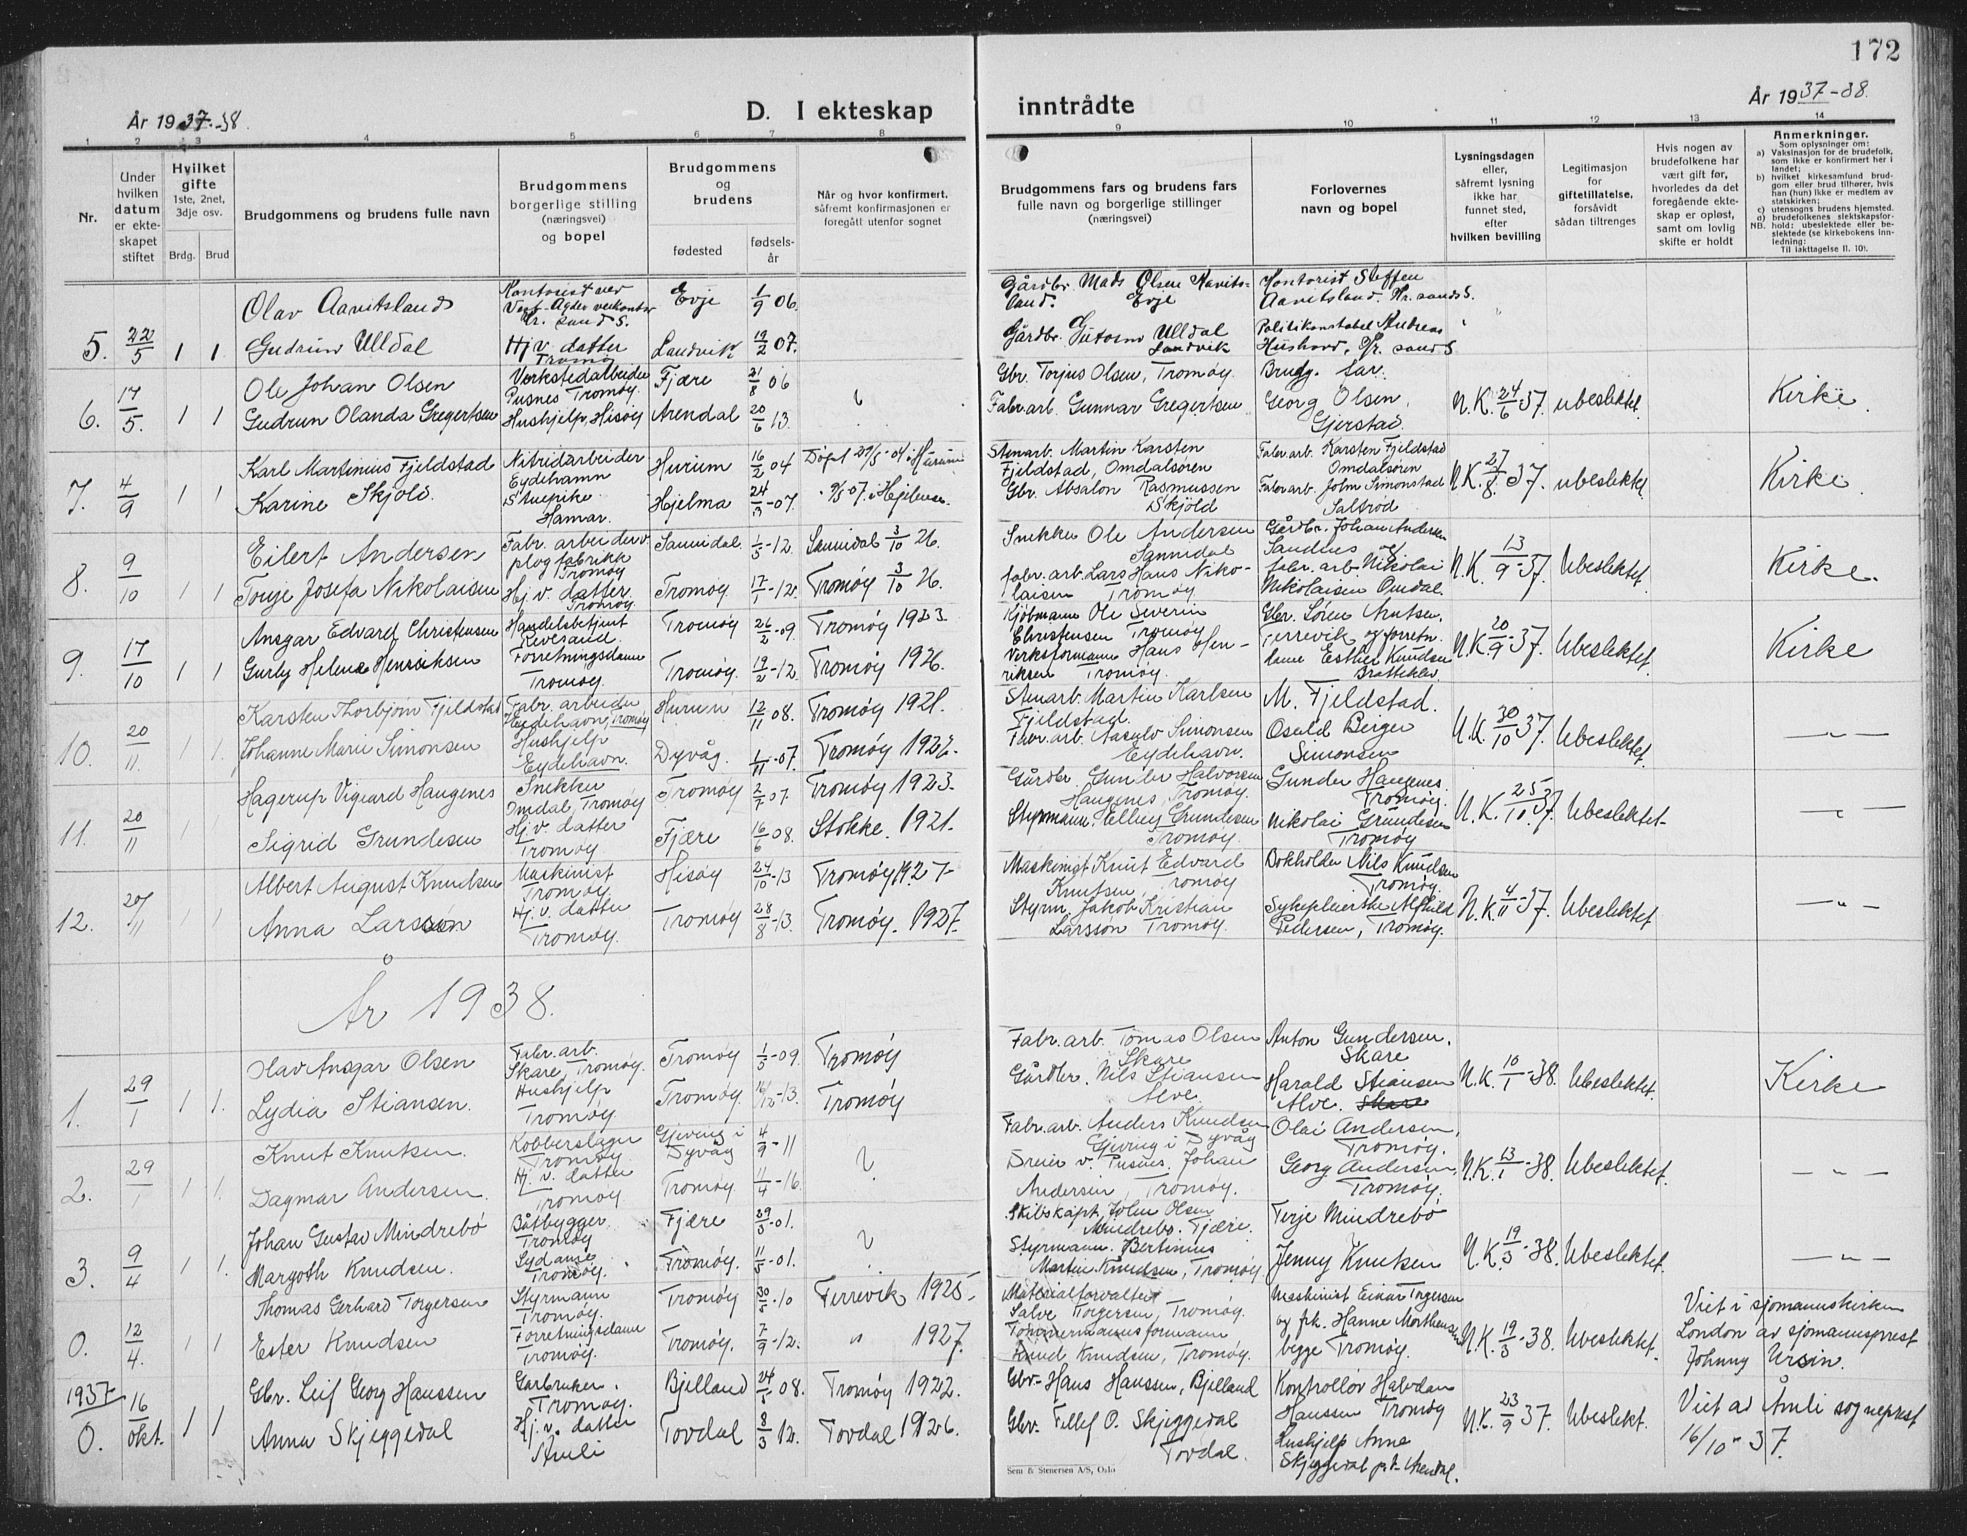 172
År 1937-38.
D. I ekteskap inntrådte
År 1937-38.
1 2 3 4 5 6 7 8 9 10 11 12 13 14
Nr.
Under hvilken datum er ekteskapet stiftet
Hvilket gifte 1ste, 2net, 3dje osv.
Brdg. Brud
Brudgommens og brudens fulle navn
Brudgommens borgerlige stilling (næringsvei) og bopel
Brudgommens og brudens
fødested
fødselsår
Når og hvor konfirmert, såfremt konfirmasjonen er foregått utenfor sognet
Brudgommens fars og brudens fars fulle navn og borgerlige stillinger (næringsvei)
Forlovernes navn og bopel
Lysningsdagen eller, såfremt lysning ikke har funnet sted, efter hvilken bevilling
Legitimasjon for giftetillatelse, forsåvidt sådan tiltrenges
Hvis nogen av brudefolkene har vært gift før, hvorledes da det foregående ekteskap er opløst, samt om lovlig skifte er holdt
Anmerkninger.
Som oplysninger om:
a) Vaksinasjon for de brudefolk, som ikke er konfirmert her i landet;
b) hvilket kirkesamfund brudgom eller brud tilhører, hvis han (hun) ikke er medlem av statskirken;
c) utensogns brudens hjemsted.
d) brudefolkenes slektskapsforhold: ubeslektede eller beslektede (se kirkebokens innledning:
NB.
Til iakttagelse II. 10).
5. 22/5 1 1
Olav Aavitsland
Evje 1/9 06
Gårdbr. Mads Olsen Aavitsland. Evje
Kontorist Steffen Aavitsland. Kr. sand S.
Gudrun Ulldal
Hj. v. datter Tromøy
Landvik 19/2 07.
Gårdbr. Ulldal Landvik
Politikonstabel Andreas
6. 17/5. 1 1
Ole Johan Olsen
Verkstedarbeider Pusnes Tromøy.
Fjære 21/8 06
Gbr. Torjus Olsen, Tromøy.
Brudg. far.
Gudrun Olanda Gregertsen
Hushjelp, Hisøy
Arendal 20/6 13.
Fabr. arb. Gunnar Gregertsen
Georg Olsen, Gjerstad.
N.K. 24/6 37. ubeslektet. Kirke.
7. 4/9 1 1
Karl Martinius Fjeldstad
Nitridarbeider Eydehamn
Hurum 16/2 04
Døpt 29/5-04 i Hurum
Stenarb. Martin Karsten Fjeldstad, Omdalsøren
Fabr. arb. Karsten Fjeldstad Omdalsøren
Karine Skjold.
Stuepike Hamar.
Hjelma 24/3-07.
Gbr. Absalon Rasmussen Skjöld
Fabr. arb. John Simonstad Saltrød
N.K. 27/8 37. ubeslektet Kirke.
8. 9/10 1 1
Eilert Andersen
Fabr. arbeider v. plogfabrikk Tromøy
Sannidal. 1/5-12.
Sannidal 3/10 26.
Snekker Ole Andersen Sannidal
Gårdbr. Johan Andersen Sandnes og
Tonje Josefa Nikolaisen
Hj. v. datter. Tromøy.
Tromøy 17/1-12.
Tromøy 3/10 26.
fabr. arb. Lars Hans Nikolaisen Tromøy
fabr. arb. Nikolai Nikolaisen Omdal.
N.K. 13/9-37. Ubeslektet. Kirke.
9. 17/10 1 1
Ansgar Edvard Christensen
Handelsbetjent Revesand.
Tromøy 26/2-09.
Tromøy 1923.
Kjøbmann Ole Severin Christensen Tromøy
Gbr. Søren Arntsen, Færrevik og forretn.
Gurly Helene Henriksen
Forretningsdame Tromøy.
Tromøy. 19/2-12.
Tromøy 1926.
Verksformann Hans Henriksen Tromøy.
dame Esther Knudsen Brattekleiv
N.K. 20/9 37. Ubeslektet. Kirke
10. 20/11. 1 1.
Karsten Thorbjørn Fjeldstad
Fabr. arbeider Eydehavn, Tromøy
Hurum 12/11 08.
Tromøy 1921.
Stenarb. Martin Karlsen Fjeldstad.
M. Fjeldstad.
Johanne Marie Simonsen
Hushjelp Eydehavn.
Dyvåg. 1/11-07.
Tromøy 1922.
Fabr. arb. Aasulv Simonsen Eydehavn.
Osvald Berger Simonsen
N.K. 30/10 37. Ubeslektet. —"—
11. 20/11 1 1
Hagerup Vigeard Haugenes
Snekker Omdal, Tromøy
Tromøy 2/7 07.
Tromøy 1923.
Gårdbr. Gunder Halvorsen Haugenes, Tromøy.
Gunder Haugenes. Tromøy.
Sigrid Grundesen
Hj. v. datter Tromøy.
Fjære 16/6 08.
Stokke. 1921.
Styrmann. Elley Grundesen Tromøy.
Nikolai Grundesen Tromøy
N.K. 25/10 37. Ubeslektet —"—
12. 20/11 1 1
Albert August Knudsen
Maskinist Tromøy.
Hisøy 24/10-13
Tromøy 1927-
Maskinist Knut Edvard Knutsen, Tromøy
Bokholder Nils Knudsen Tromøy.
Anna Larsson
Hj. v. datter Tromøy.
Tromøy 28/8-13.
Tromøy. 1927.
Styrm. Jakob Kristian Larsson Tromøy.
Sykepleierske Alfhild Pedersen, Tromøy.
N.K. 4/11-37. Ubeslektet. —"—
År 1938.
1. 29/1 1 1.
Olav Ansgar Olsen
Fabr. arb. Skare, Tromøy.
Tromøy 1/5-09.
Tromøy
Fabr. arb. Tomas Olsen Skare
Anton Gundersen. Skare
Lydia Stiansen.
Hushjelp Tromøy
Tromøy. 16/12-13.
Tromøy
Gårdbr. Nils Stiansen Alve.
Harald Stiansen Alve. Skare
N.K. 10/1-38. Ubeslektet. Kirke
2. 29/1 1 1.
Knut Knutsen.
Kobberslager Tromøy.
Gjeving i Dyvåg 4/9-11
Fabr. arb. Anders Knudsen Gjeving i Dyvåg
Olai Andersen, Tromøy.
Dagmar Andersen.
Hj. v. datter Tromøy
Tromøy 11/4-16.
Dreier v. Pusnes. Johan Andersen, Tromøy.
Georg Andersen, Tromøy.
N.K. 13/1-38. Ubeslektet. —"—
3. 9/4 1 1.
Johan Gustav Mindrebö
Båtbygger. Tromøy
Fjære 29/3-01.
Skibskapt. John Olsen Mindrebö. Fjære.
Terje Mindrebö
Margoth Knudsen.
Tromøy.
Tromøy. 11/5-01.
Styrmann. Bertinius Martin Knudsen, Tromøy.
Jenny Knutsen
N.K. 19/3-38. Ubeslektet. —"—
0. 12/4. 1 1
Thomas Gerhard Torgersen
Styrmann Tromøy.
Tromøy 30/5-10
Færrevik 1925-
Materialforvalter Salve Torgersen, Tromøy.
Maskinist Einar Torgersen og frk. Hanne Morthensen begge Tromøy.
Ester Knudsen
Forretningsdame Tromøy.
Tromøy. 7/9-12.
" 1927.
Tømmermannsformann Knud Knudsen, Tromøy.
N.K. 19/3-38. Ubeslektet.
Viet i sjømannskirken London av sjømannsprest Johnny Ursin.
1937
0. 16 okt. 1 1
Gbr. Leif Georg Hanssen
Garbruker. Tromøy.
Bjelland 24/5 08.
Tromøy 1922.
Gbr. Hans Hanssen, Bjelland
Kontrollør Halvdan Hanssen Tromøy
Anna Skjeggedal
Hj. v. datter Åmli
Tovdal 8/3 12.
Tovdal 1926.
Gbr. Tellef O. Skjeggedal Tovdal.
Hushjelp Anne Skjeggedal p.t. Arendal.
N.K. 23/9 37. Ubeslekt.
Viet av Åmli sogneprest 16/10-37.
Sem & Stenersen A/S, Oslo